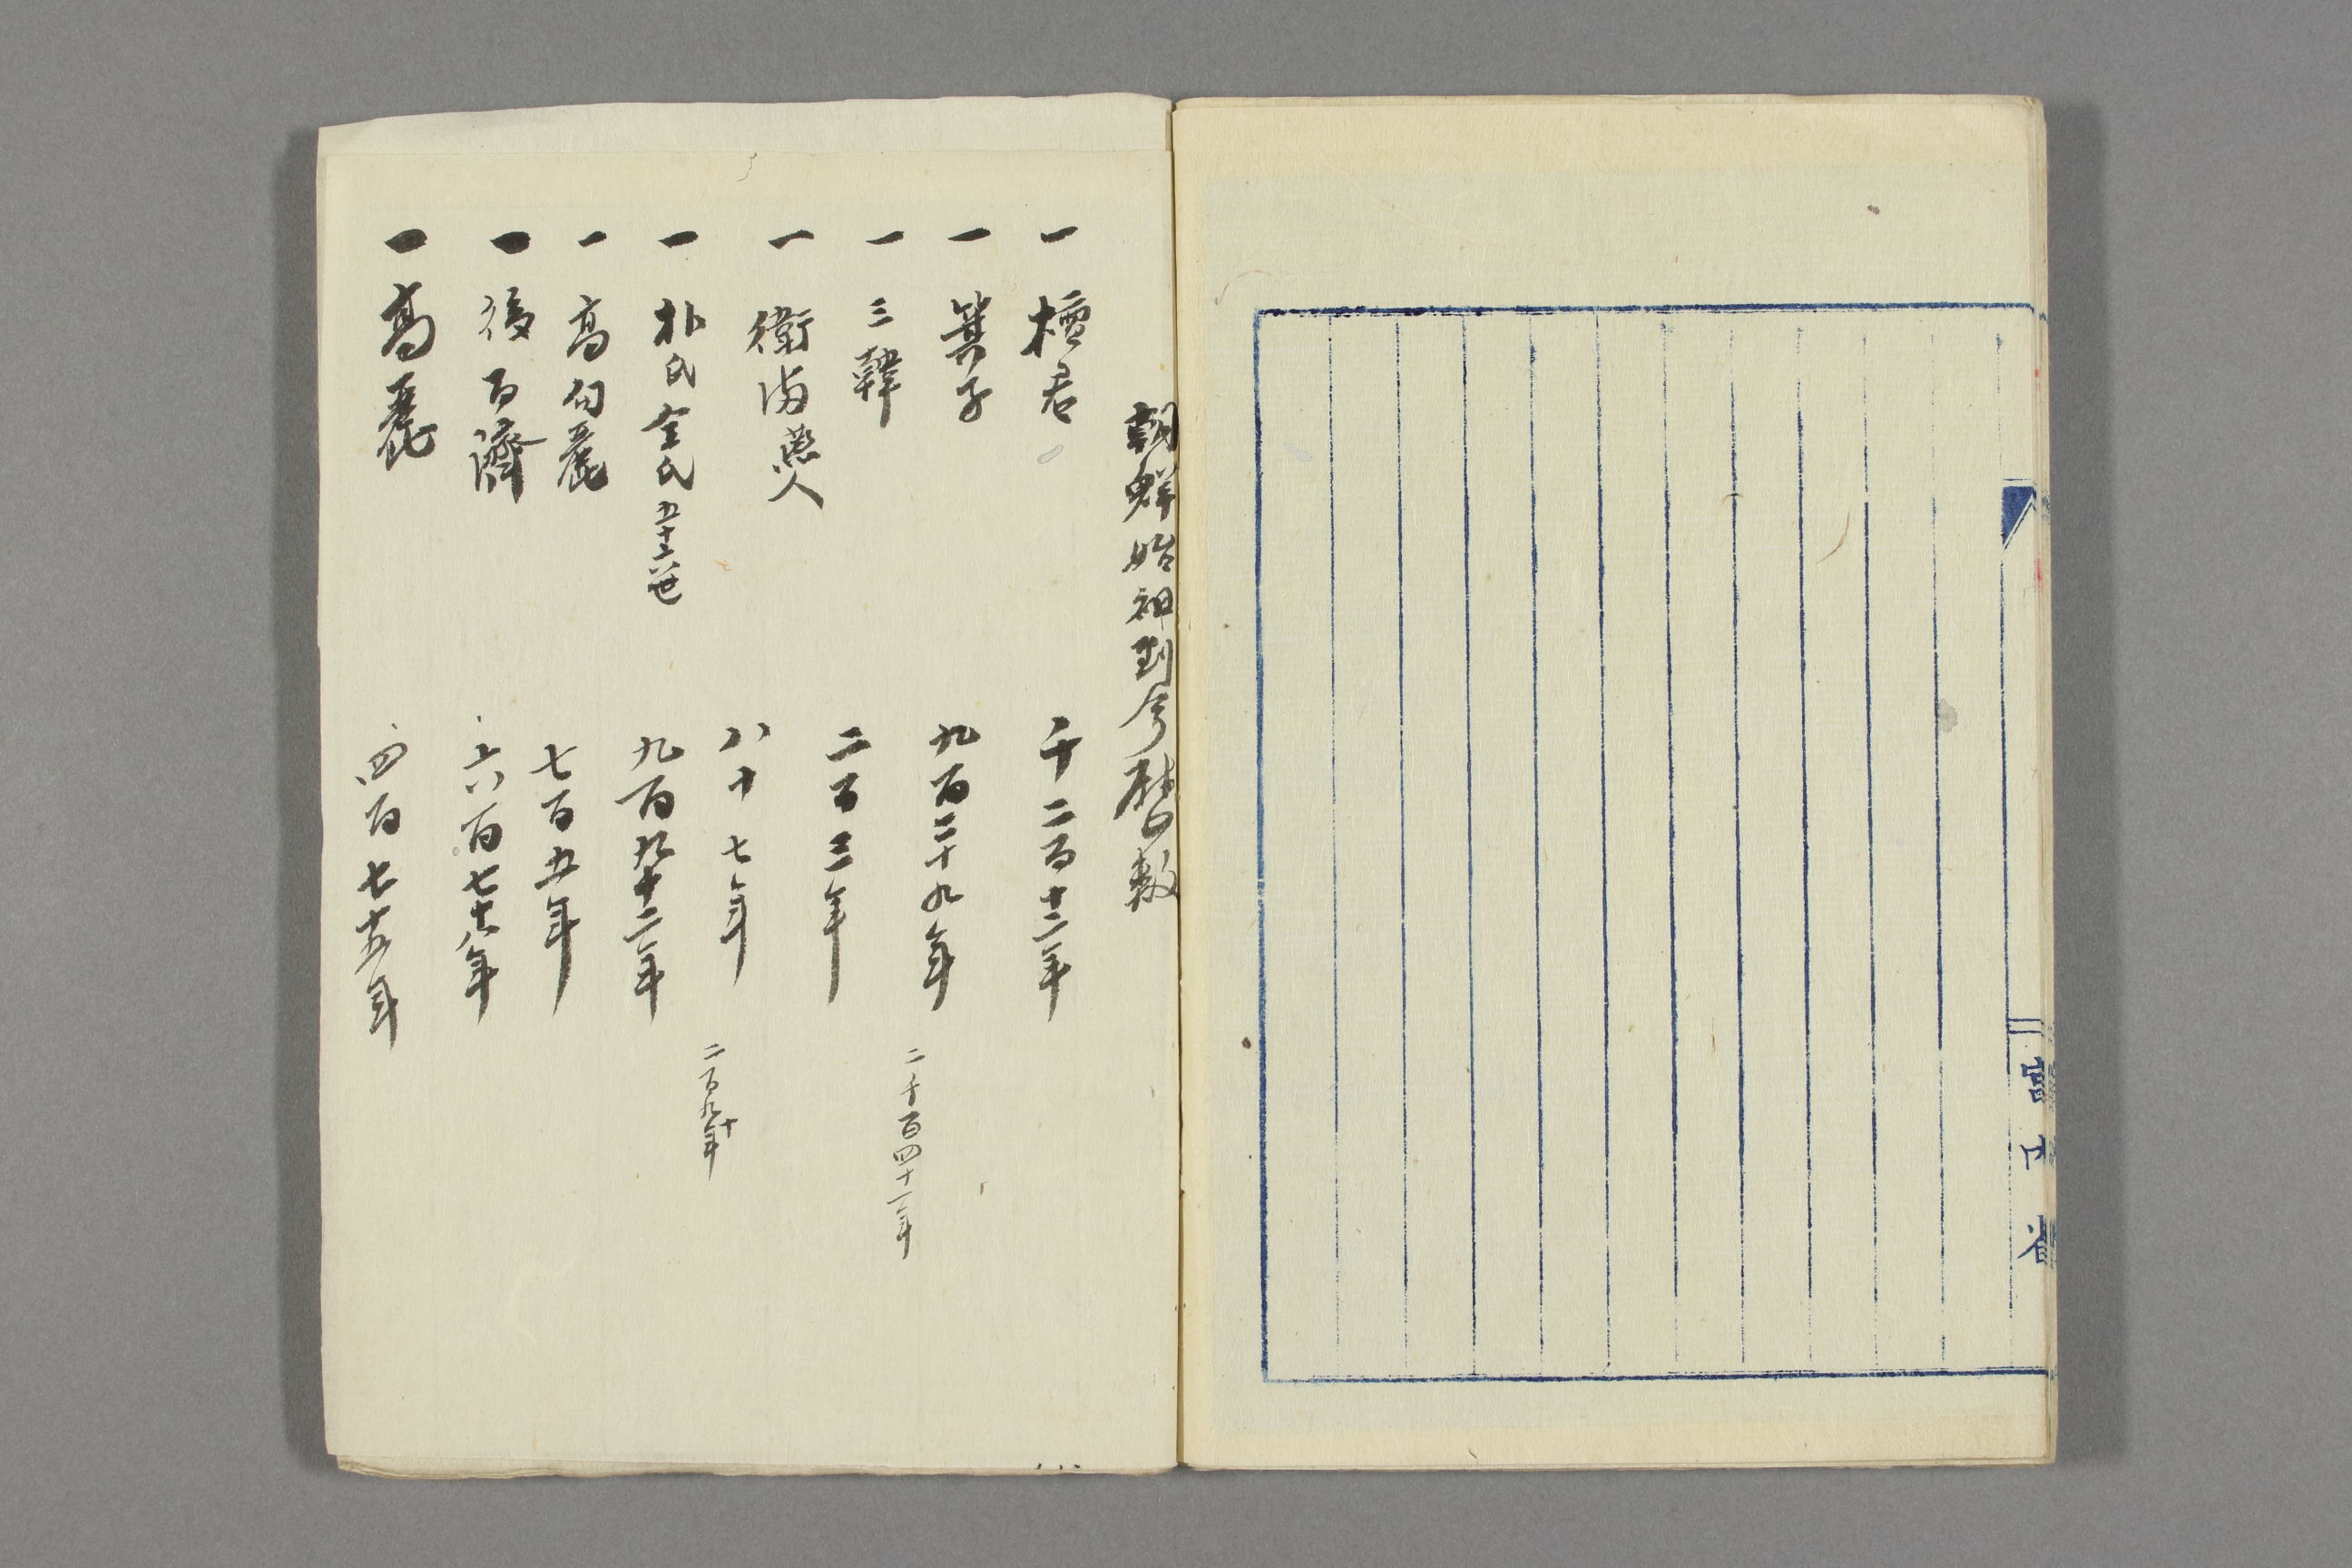 宮内省
朝鮮始祖到今歴数
一 檀君 千二百十二年
一 箕子 九百二十九年
二千百四十一年
一 三韓 二百三年
一 衛満燕人 八十七年
二百九十年
一 朴氏金氏五十六世 九百九十二年
一 高句麗 七百五年
一 後百済 六百七十八年
一 高麗 四百七十五年